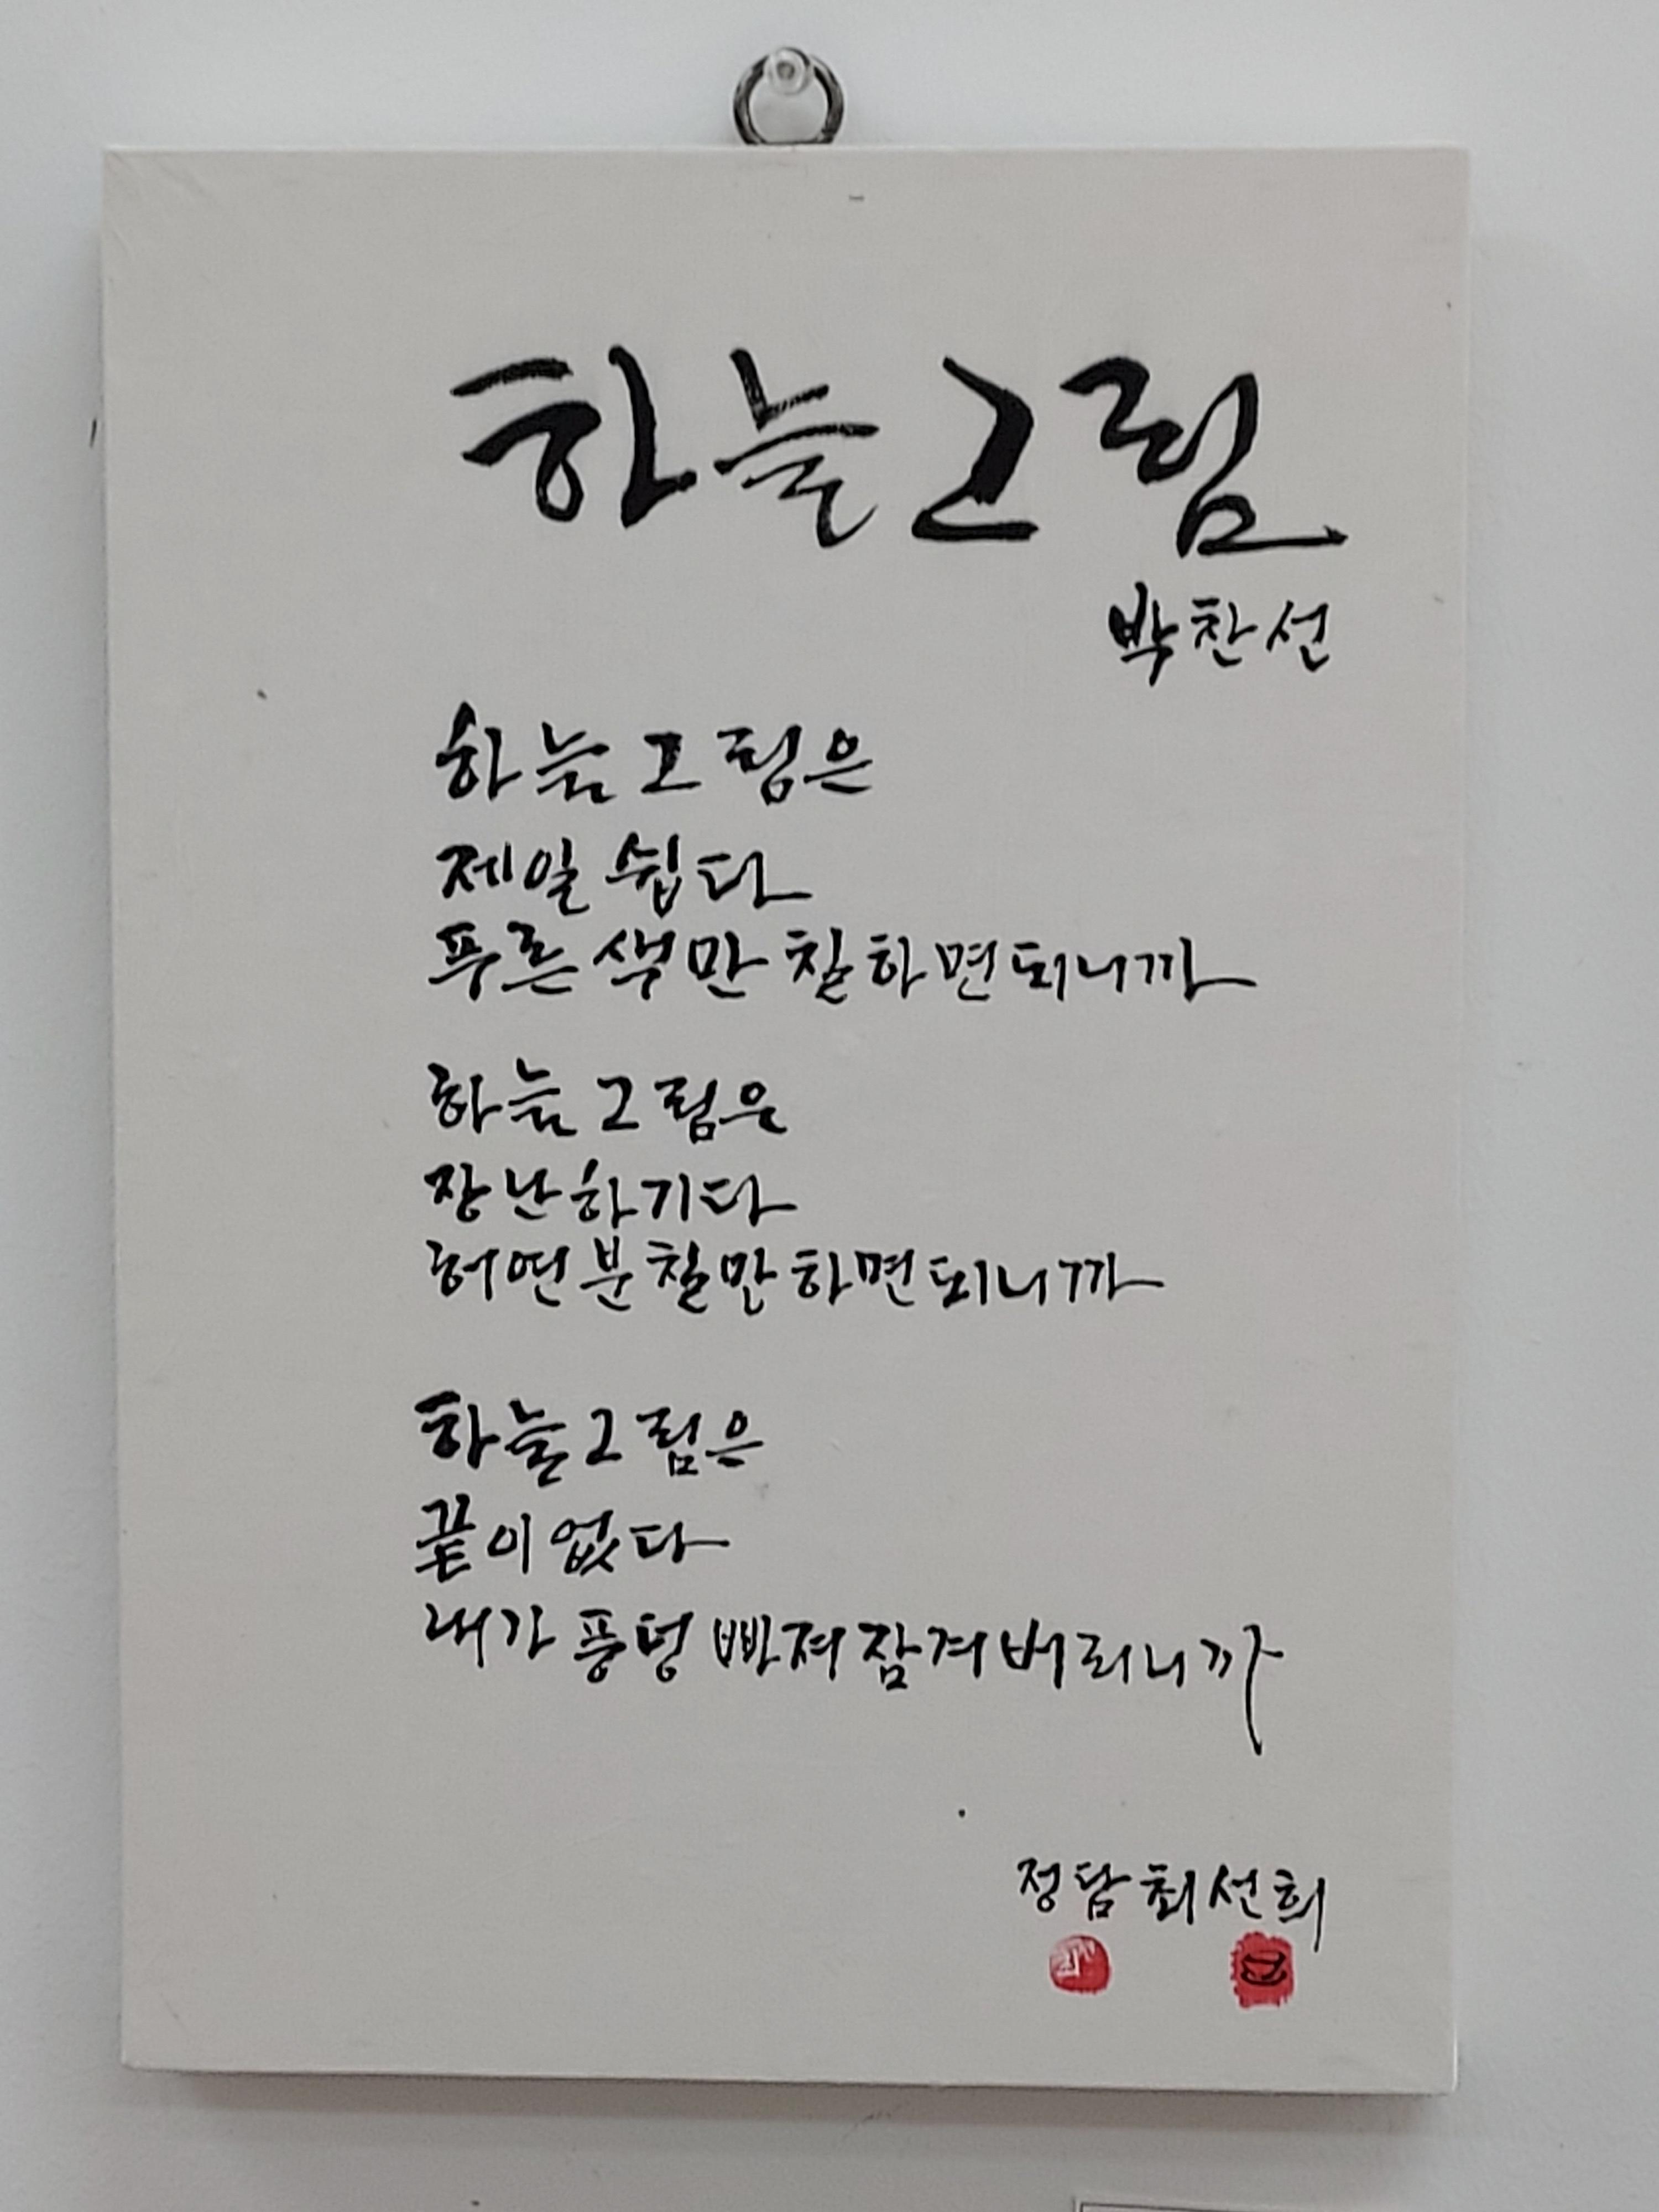 하늘 그림
박찬선
하늘 그림은
제일 쉽다
푸른 색만 칠하면 되니까
하늘 그림은
장난하기다
허연 분칠만 하면 되니까
하늘 그림은
끝이 없다
내가 풍덩 빠져 잠겨 버리니까
정담 최선희